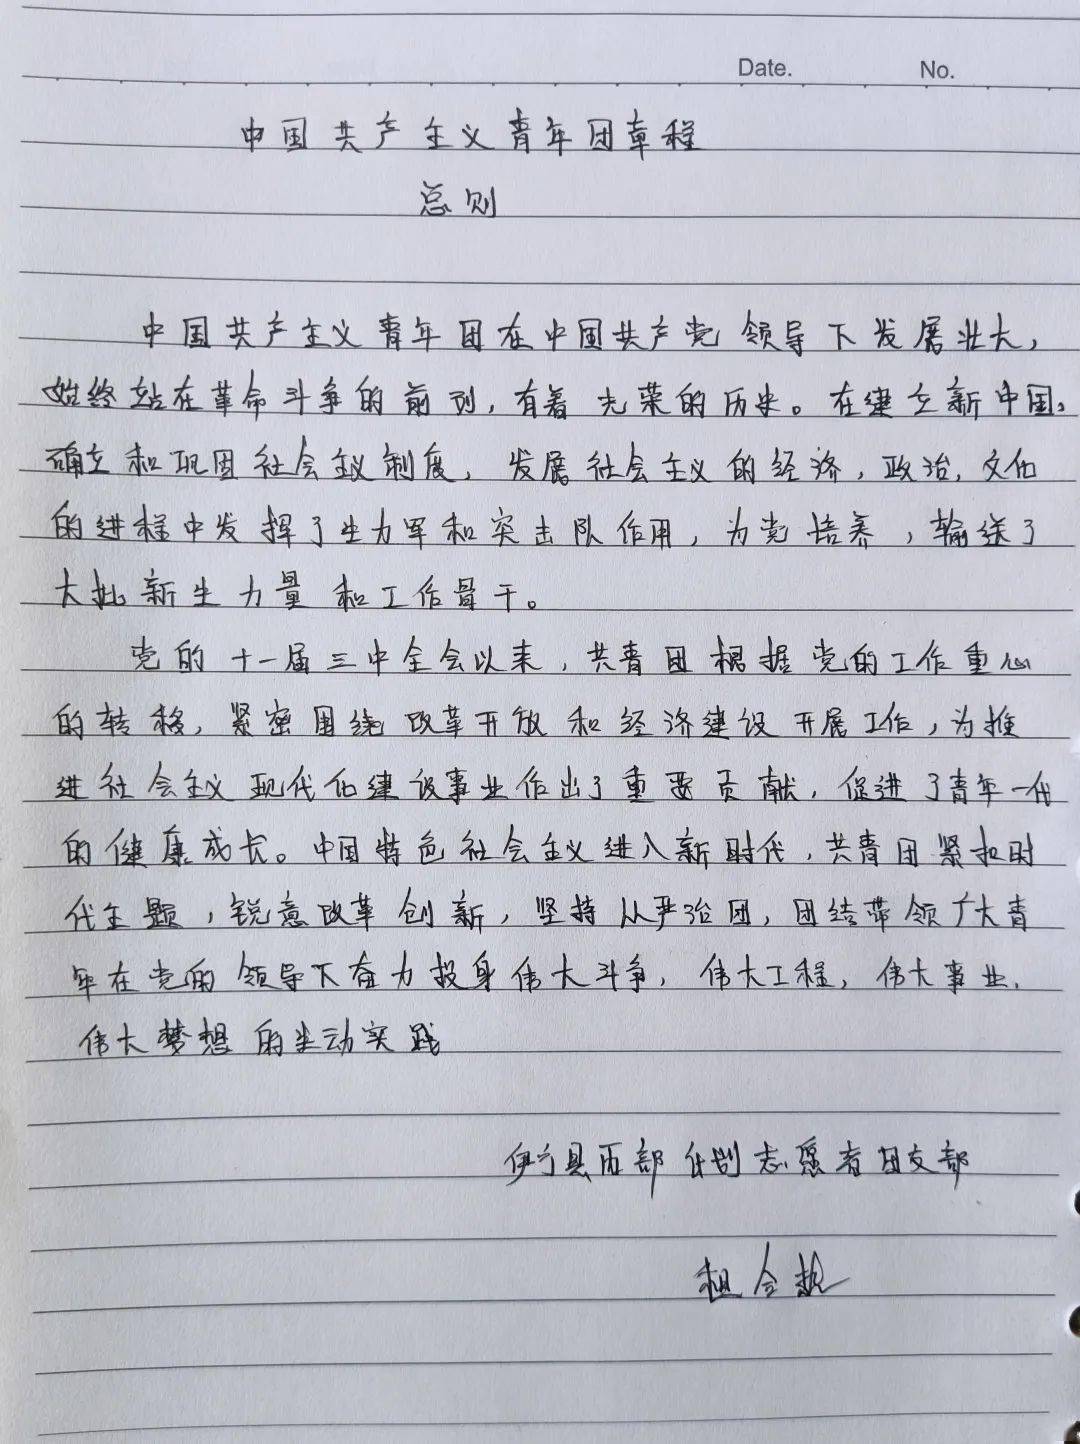 Date. No.
中国共产主义青年团章程
总则
中国共产主义青年团在中国共产党领导下发展壮大,
始终站在革命斗争的前列,有着光荣的历史。在建立新中国,
确立和巩固社会主义制度,发展社会主义的经济,政治,文化
的进程中发挥了生力军和突击队作用,为党培养,输送了
大批新生力量和工作骨干。
党的十一届三中全会以来,共青团根据党的工作重心
的转移,紧密围绕改革开放和经济建设开展工作,为推
进社会主义现代化建设事业作出了重要贡献,促进了青年一代
的健康成长。中国特色社会主义进入新时代,共青团紧扣时
代主题,锐意改革创新,坚持从严治团,团结带领广大青
年在党的领导下奋力投身伟大斗争,伟大工程,伟大事业,
伟大梦想的生动实践
伊宁县西部计划志愿者团支部